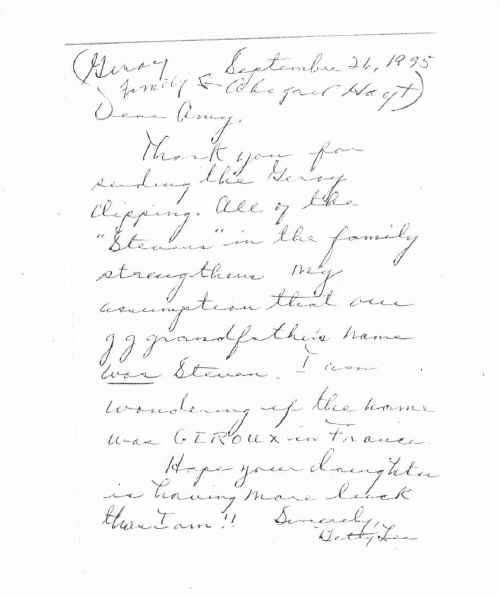 (Geroy September 26, 1995
family & Abigail Hoyt)
Dear Amy,
Thank you for
sending the Geroy
clipping. All of the
"Stevens" in the family
strengthens my
assumption that our
g g grandfather's name
was Steven. I am
wondering if the name
was GIROUX in France
Hope your daughter
is having more luck
than I am!! Sincerely,
Betty Lee